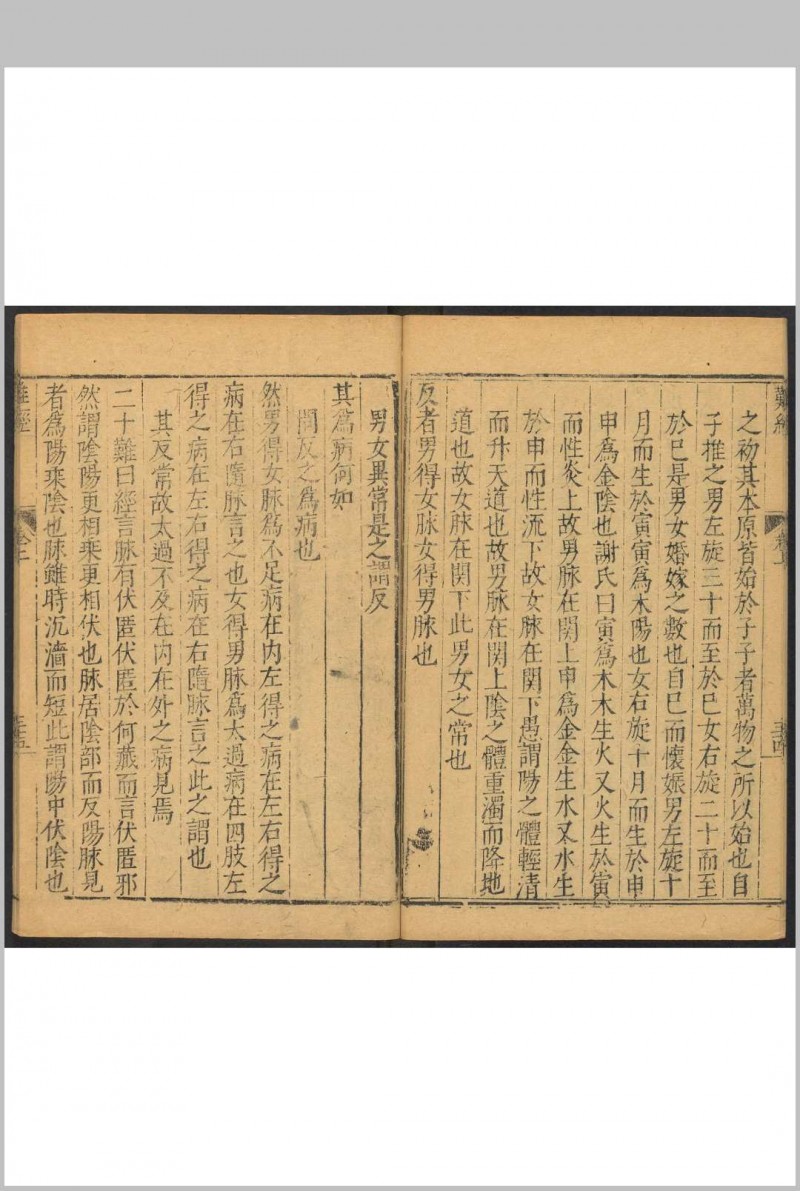 難經
卷上
之初其本原皆始於子子者萬物之所以始也自
子推之男左旋三十而至於巳女右旋二十而至
於巳是男女婚嫁之數也自巳而懷娠男左旋十
月而生於寅寅爲木陽也女右旋十月而生於申
申爲金陰也謝氏曰寅爲木木生火又火生於寅
而性炎上故男脉在関上申爲金金生水又水生
於申而性流下故女脉在関下愚謂陽之體輕清
而升天道也故男脉在関上陰之體重濁而降地
道也故女脉在関下此男女之常也
反者男得女脉女得男脉也
男女異常是之謂反
其爲病何如
問反之爲病也
然男得女脉爲不足病在内左得之病在左右得之
病在右隨脉言之也女得男脉爲太過病在四肢左
得之病在左右得之病在右隨脉言之此之謂也
其反常故太過不及在内在外之病見焉
二十難曰經言脉有伏匿伏匿於何藏而言伏匿邪
然謂陰陽更相乘更相伏也脉居陰部而反陽脉見
者爲陽乘陰也脉雖時沉濇而短此謂陽中伏陰也
難經
卷上